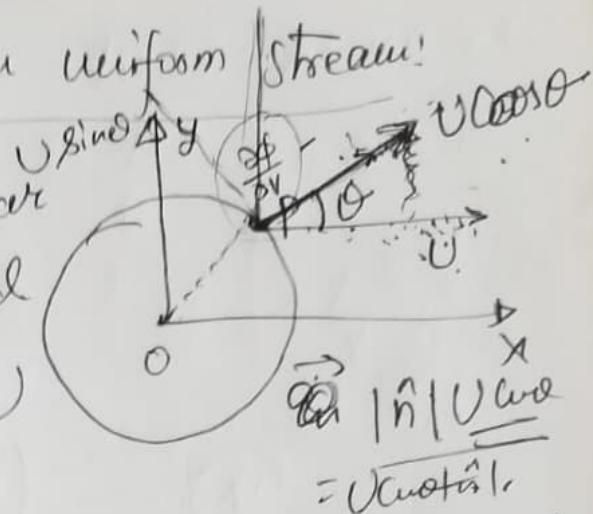 uniform Stream:
U sinθ y
U Cosθ
∂φ
∂r
P θ
U
O
X
|n̂| U Cosθ
= U Cosθ |n̂|.